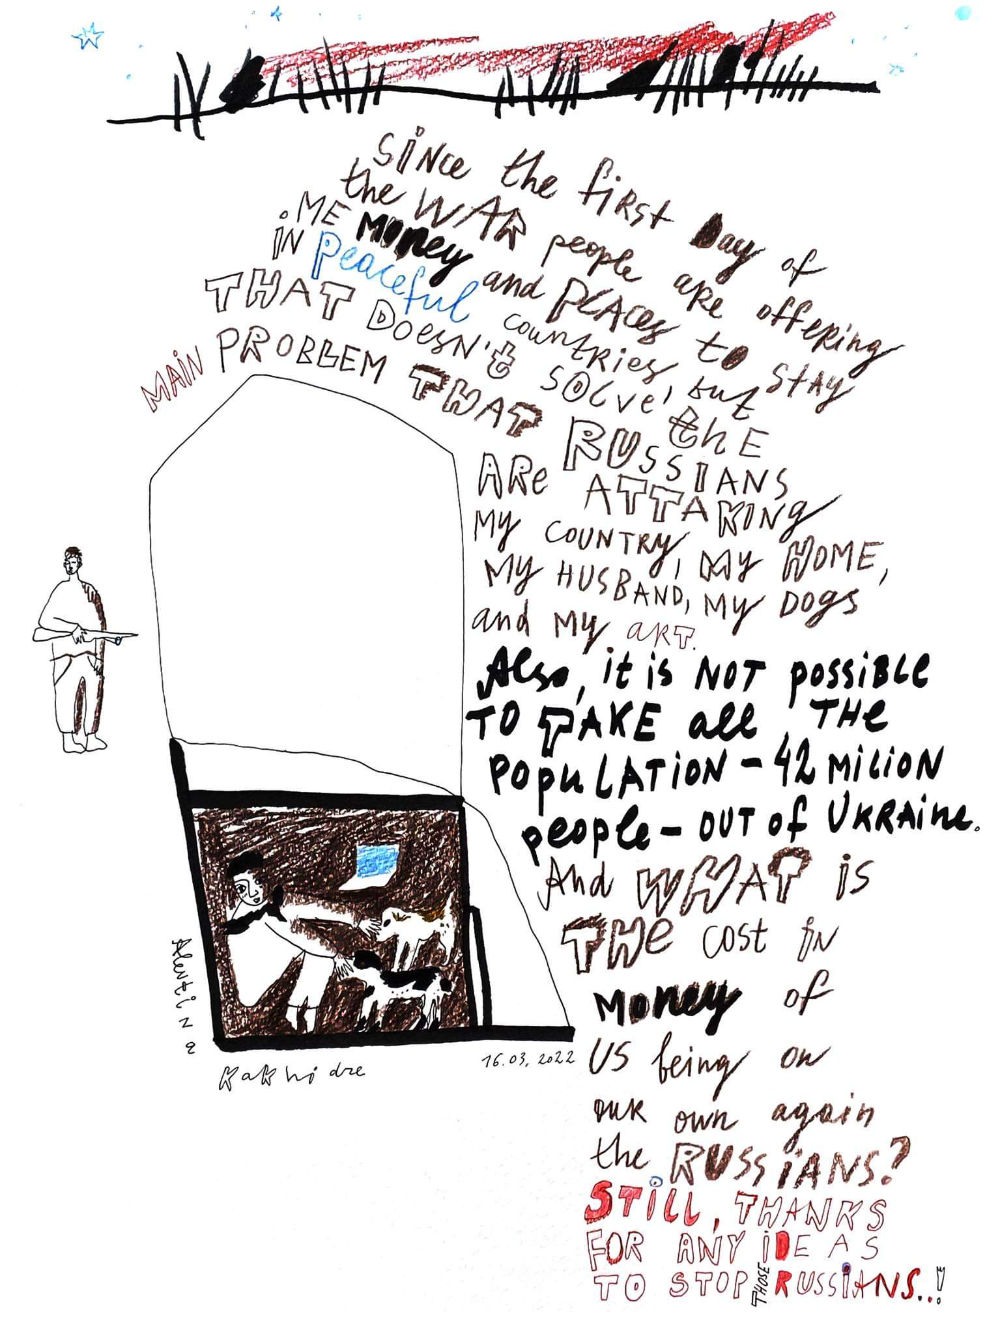 SINce the first Day of
the WAR people are offering
ME MONey and PLACes to STAY
IN peaceful countries, but
THAT DOesN't SOLve the
MAIN PROBLEM THAT RUSSIANS
ARe ATTAKING
MY COUNTRY, MY HOME,
MY HUSBAND, MY DOGS
and MY ART.
Also, it is NOT possiBLE
TO TAKE all THe
POPULATION - 42 MILION
people - OUT of UKRAiNe.
And WHAT is
THe cost iN
MONey of
US being on
our own again
the RUSSiANS?
STiLL, THANKS
FOR ANY iDEAS
TO STOP THOSE RUSSiANS..!
Alevtina
Kakhidze
16.03.2022